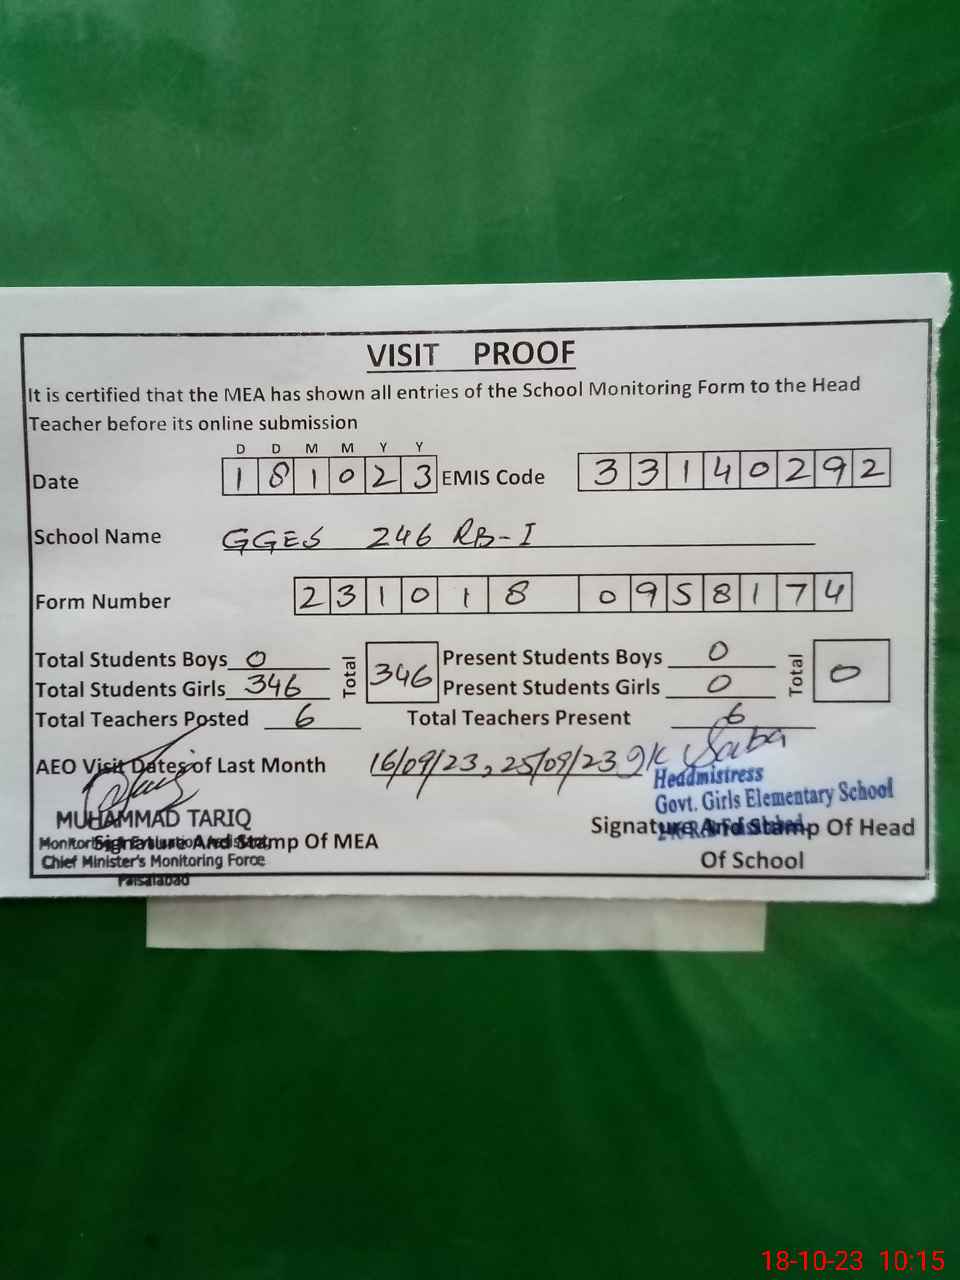 VISIT PROOF
It is certified that the MEA has shown all entries of the School Monitoring Form to the Head
Teacher before its online submission
D D M M Y Y
Date 1 8 1 0 2 3 EMIS Code 3 3 1 4 0 2 9 2
School Name GGES 246 RB-I
Form Number 2 3 1 0 1 8 0 9 5 8 1 7 4
Total Students Boys 0 Total 346 Present Students Boys 0 Total 0
Total Students Girls 346 Present Students Girls 0
Total Teachers Posted 6 Total Teachers Present 6
AEO Visit Dates of Last Month 16/09/23, 25/09/23 Saba
Headmistress
Govt. Girls Elementary School
MUHAMMAD TARIQ
Signature And Stamp Of MEA Signature And Stamp Of Head
Chief Minister's Monitoring Force Of School
Faisalabad
18-10-23 10:15